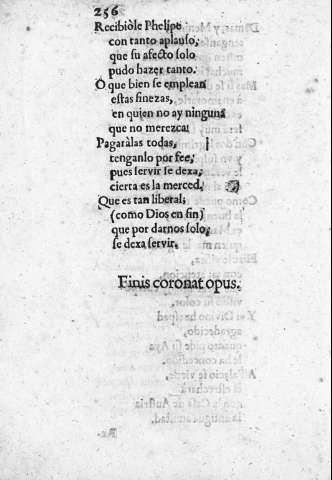 256
Recibiòle Phelipe
con tanto aplauso,
que su afecto solo
pudo hazer tanto.
O que bien se emplean
estas finezas,
en quien no ay ninguna
que no merezca!
Pagaràlas todas,
tenganlo por fee,
pues servir se dexa,
cierta es la merced,
Que es tan liberal,
(como Dios en fin)
que por darnos solo,
se dexa servir.
Finis coronat opus.